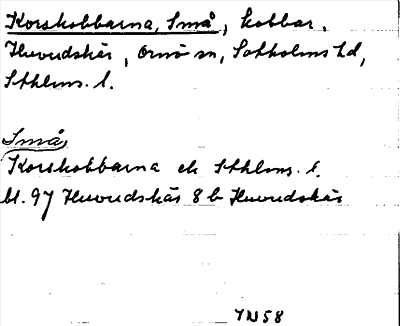 Korskobbarna, Små, kobbar,
Huvudskär, Ornö sn, Sotholms hd,
Sthlms. l.
Små
Korskobbarna ek Sthlms. l.
bl. 97 Huvudskär 8 b Huvudskär